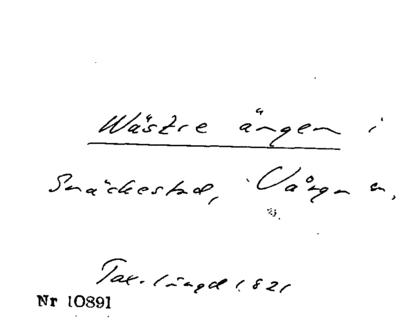 Wästre ängen i
Snäckestad, Vånga sn,
Tax. längd 1821
Nr 10891